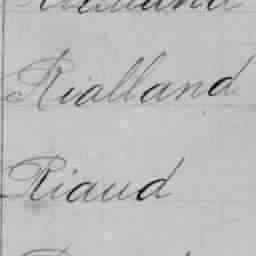 Rialland
Riaud